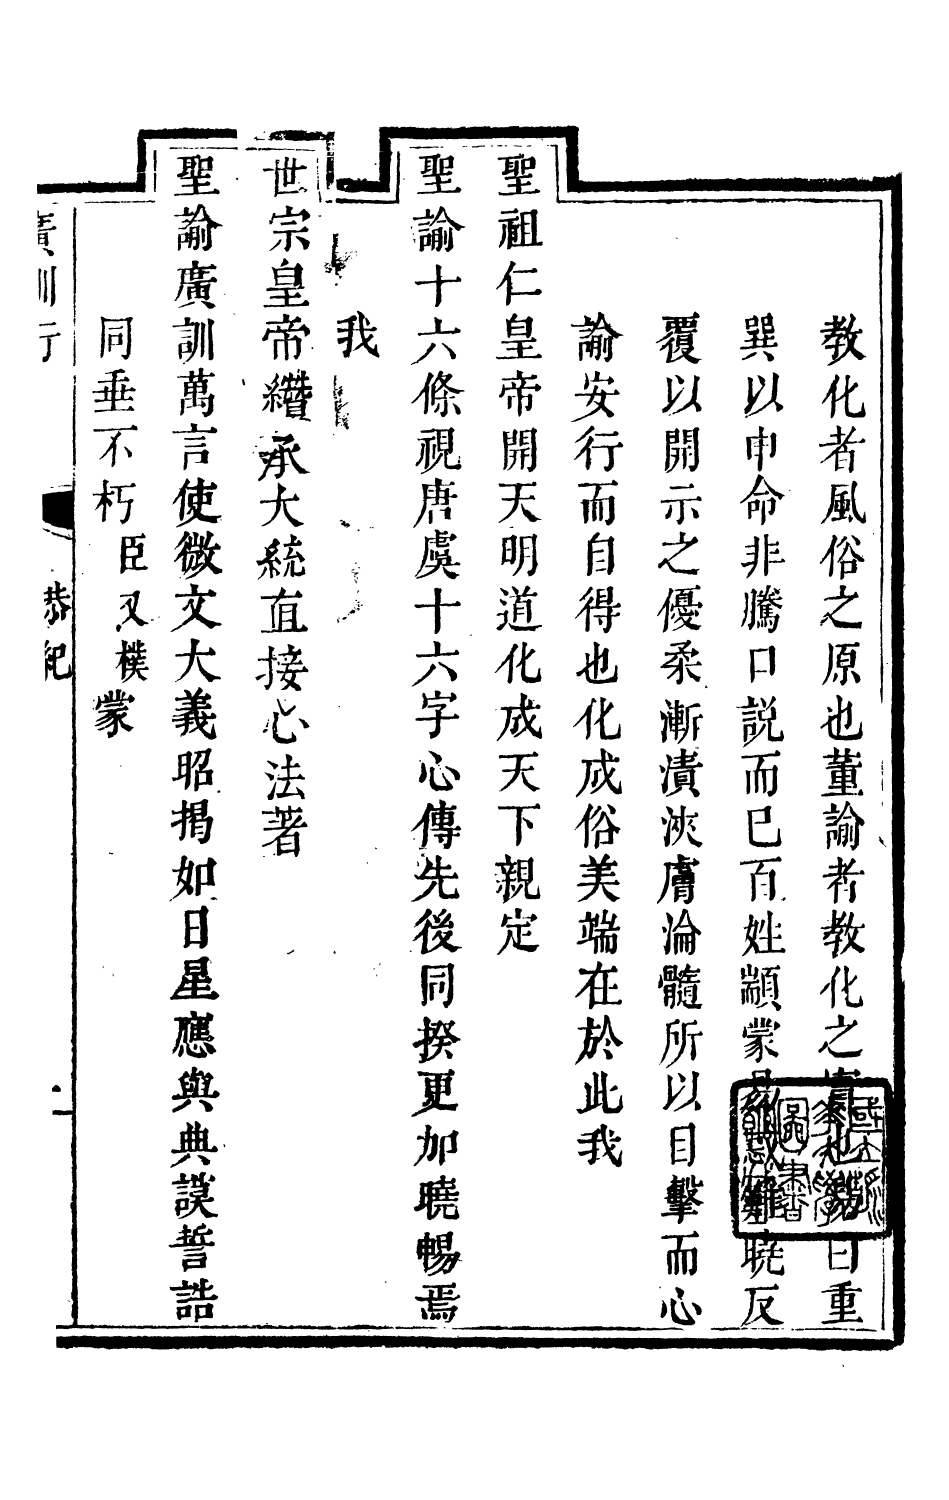 教化者風俗之原也董諭者教化之責也易曰重
巽以申命非騰口説而已百姓顓蒙易惑難曉反
覆以開示之優柔漸漬浹膚淪髓所以目擊而心
諭安行而自得也化成俗美端在於此我
聖祖仁皇帝開天明道化成天下親定
聖諭十六條視唐虞十六字心傳先後同揆更加曉暢焉
我
世宗皇帝纘承大統直接心法著
聖諭廣訓萬言使微文大義昭揭如日星應與典謨誓誥
同垂不朽臣又樸蒙
廣訓衍
恭紀
一